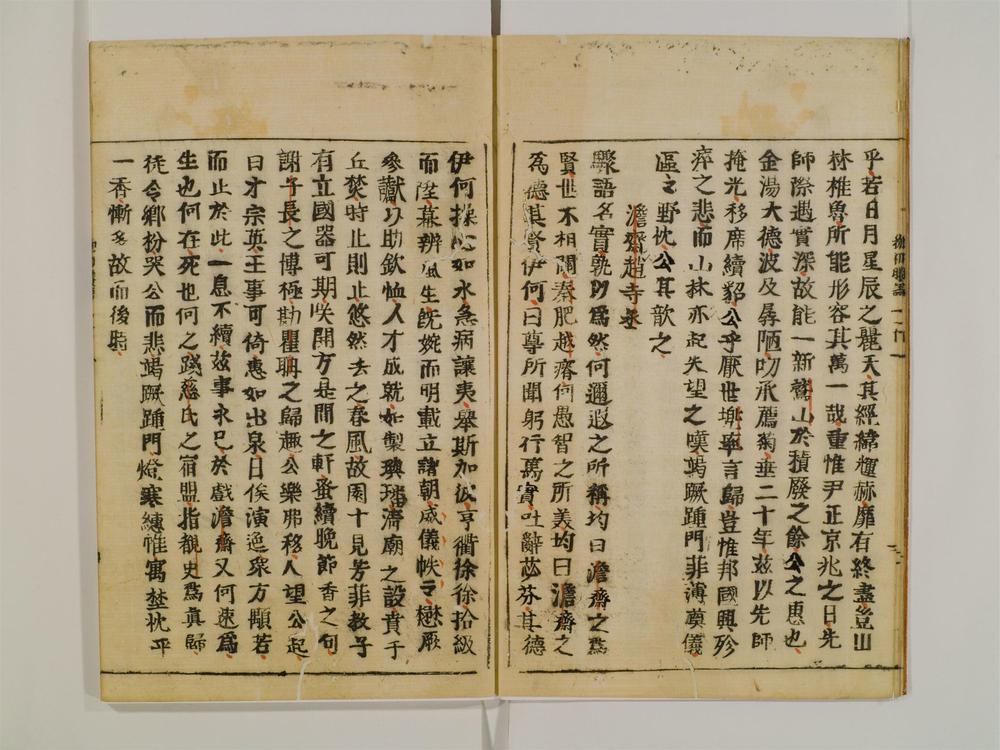 乎若日月星辰之麗天其經緯烜赫靡有終盡豈山
林椎魯所能形容其萬一哉重惟尹正京兆之日先
師際遇實深故能一新鷲山於積廢之餘公之惠也
金湯大德波及孱陋叨承薦剡垂二十年茲以先師
掩光移席續貂公乎厭世堀寧言歸豈惟邦國興殄
瘁之悲而山林亦起失望之嘆竭蹶踵門菲薄奠儀
區〻野忱公其歆之
澹齋趙寺丞
縣語名實孰以爲然何邇遐之所稱均曰澹齋之爲
賢世不相關秦肥越瘠何愚智之所美均曰澹齋之
爲德其賢伊何曰尊所聞躬行萬實吐辭苾芬其德
伊何操心如水急病讓夷舉斯加彼亨衢徐徐拾級
而陞幕辨風生旣婉而明載立諸朝威儀帙〻懋厥
參獻以助欽恤人才成就如製璵璠淸廟之設賁于
丘樊時止則止悠然去之春風故園十見芳菲敎子
有立國器可期咲開方是閒之軒蚤續晚節香之句
謝子長之博極勘瞿聃之歸趣公樂弗移人望公起
曰才宗英王事可倚惠如出泉日俟演迤衆方顒若
而止於此一息不續茲事永已於戲澹齋又何速爲
生也何在死也何之踐慈氏之宿盟指覩史爲眞歸
徒令鄕枌哭公而悲竭蹶踵門燈寒繐帷寓埜忱乎
一香慚名故而後時